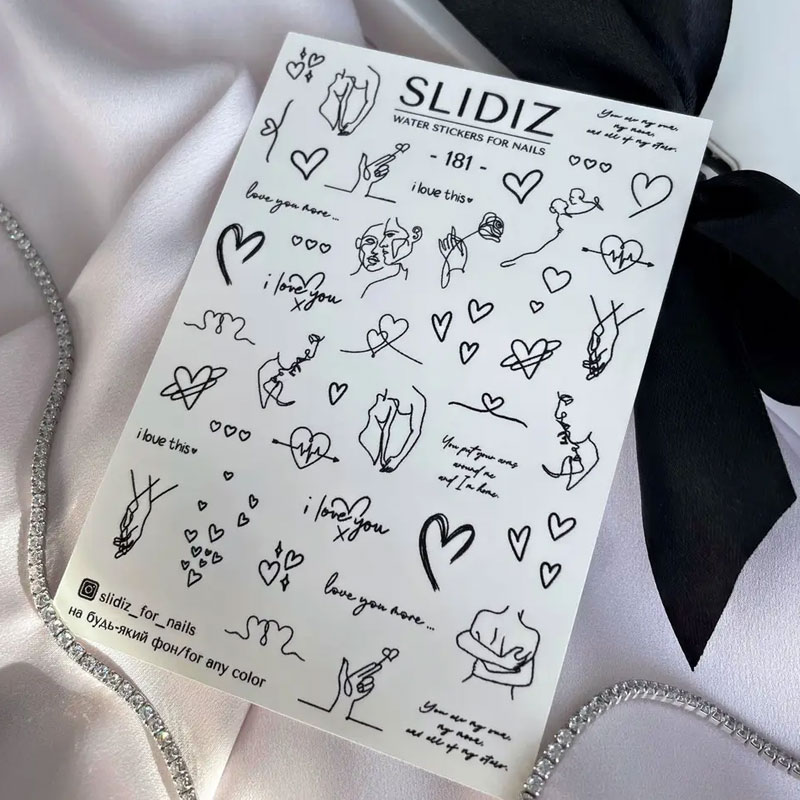 SLIDIZ
WATER STICKERS FOR NAILS
- 181 -
You are my sun,
my moon,
and all of my stars.
i love this
love you more...
i love you
x
i love this
You put your arms
around me
and I'm home.
i love you
x
love you more...
slidiz_for_nails
на будь-який фон/for any color
You are my sun,
my moon,
and all of my stars.